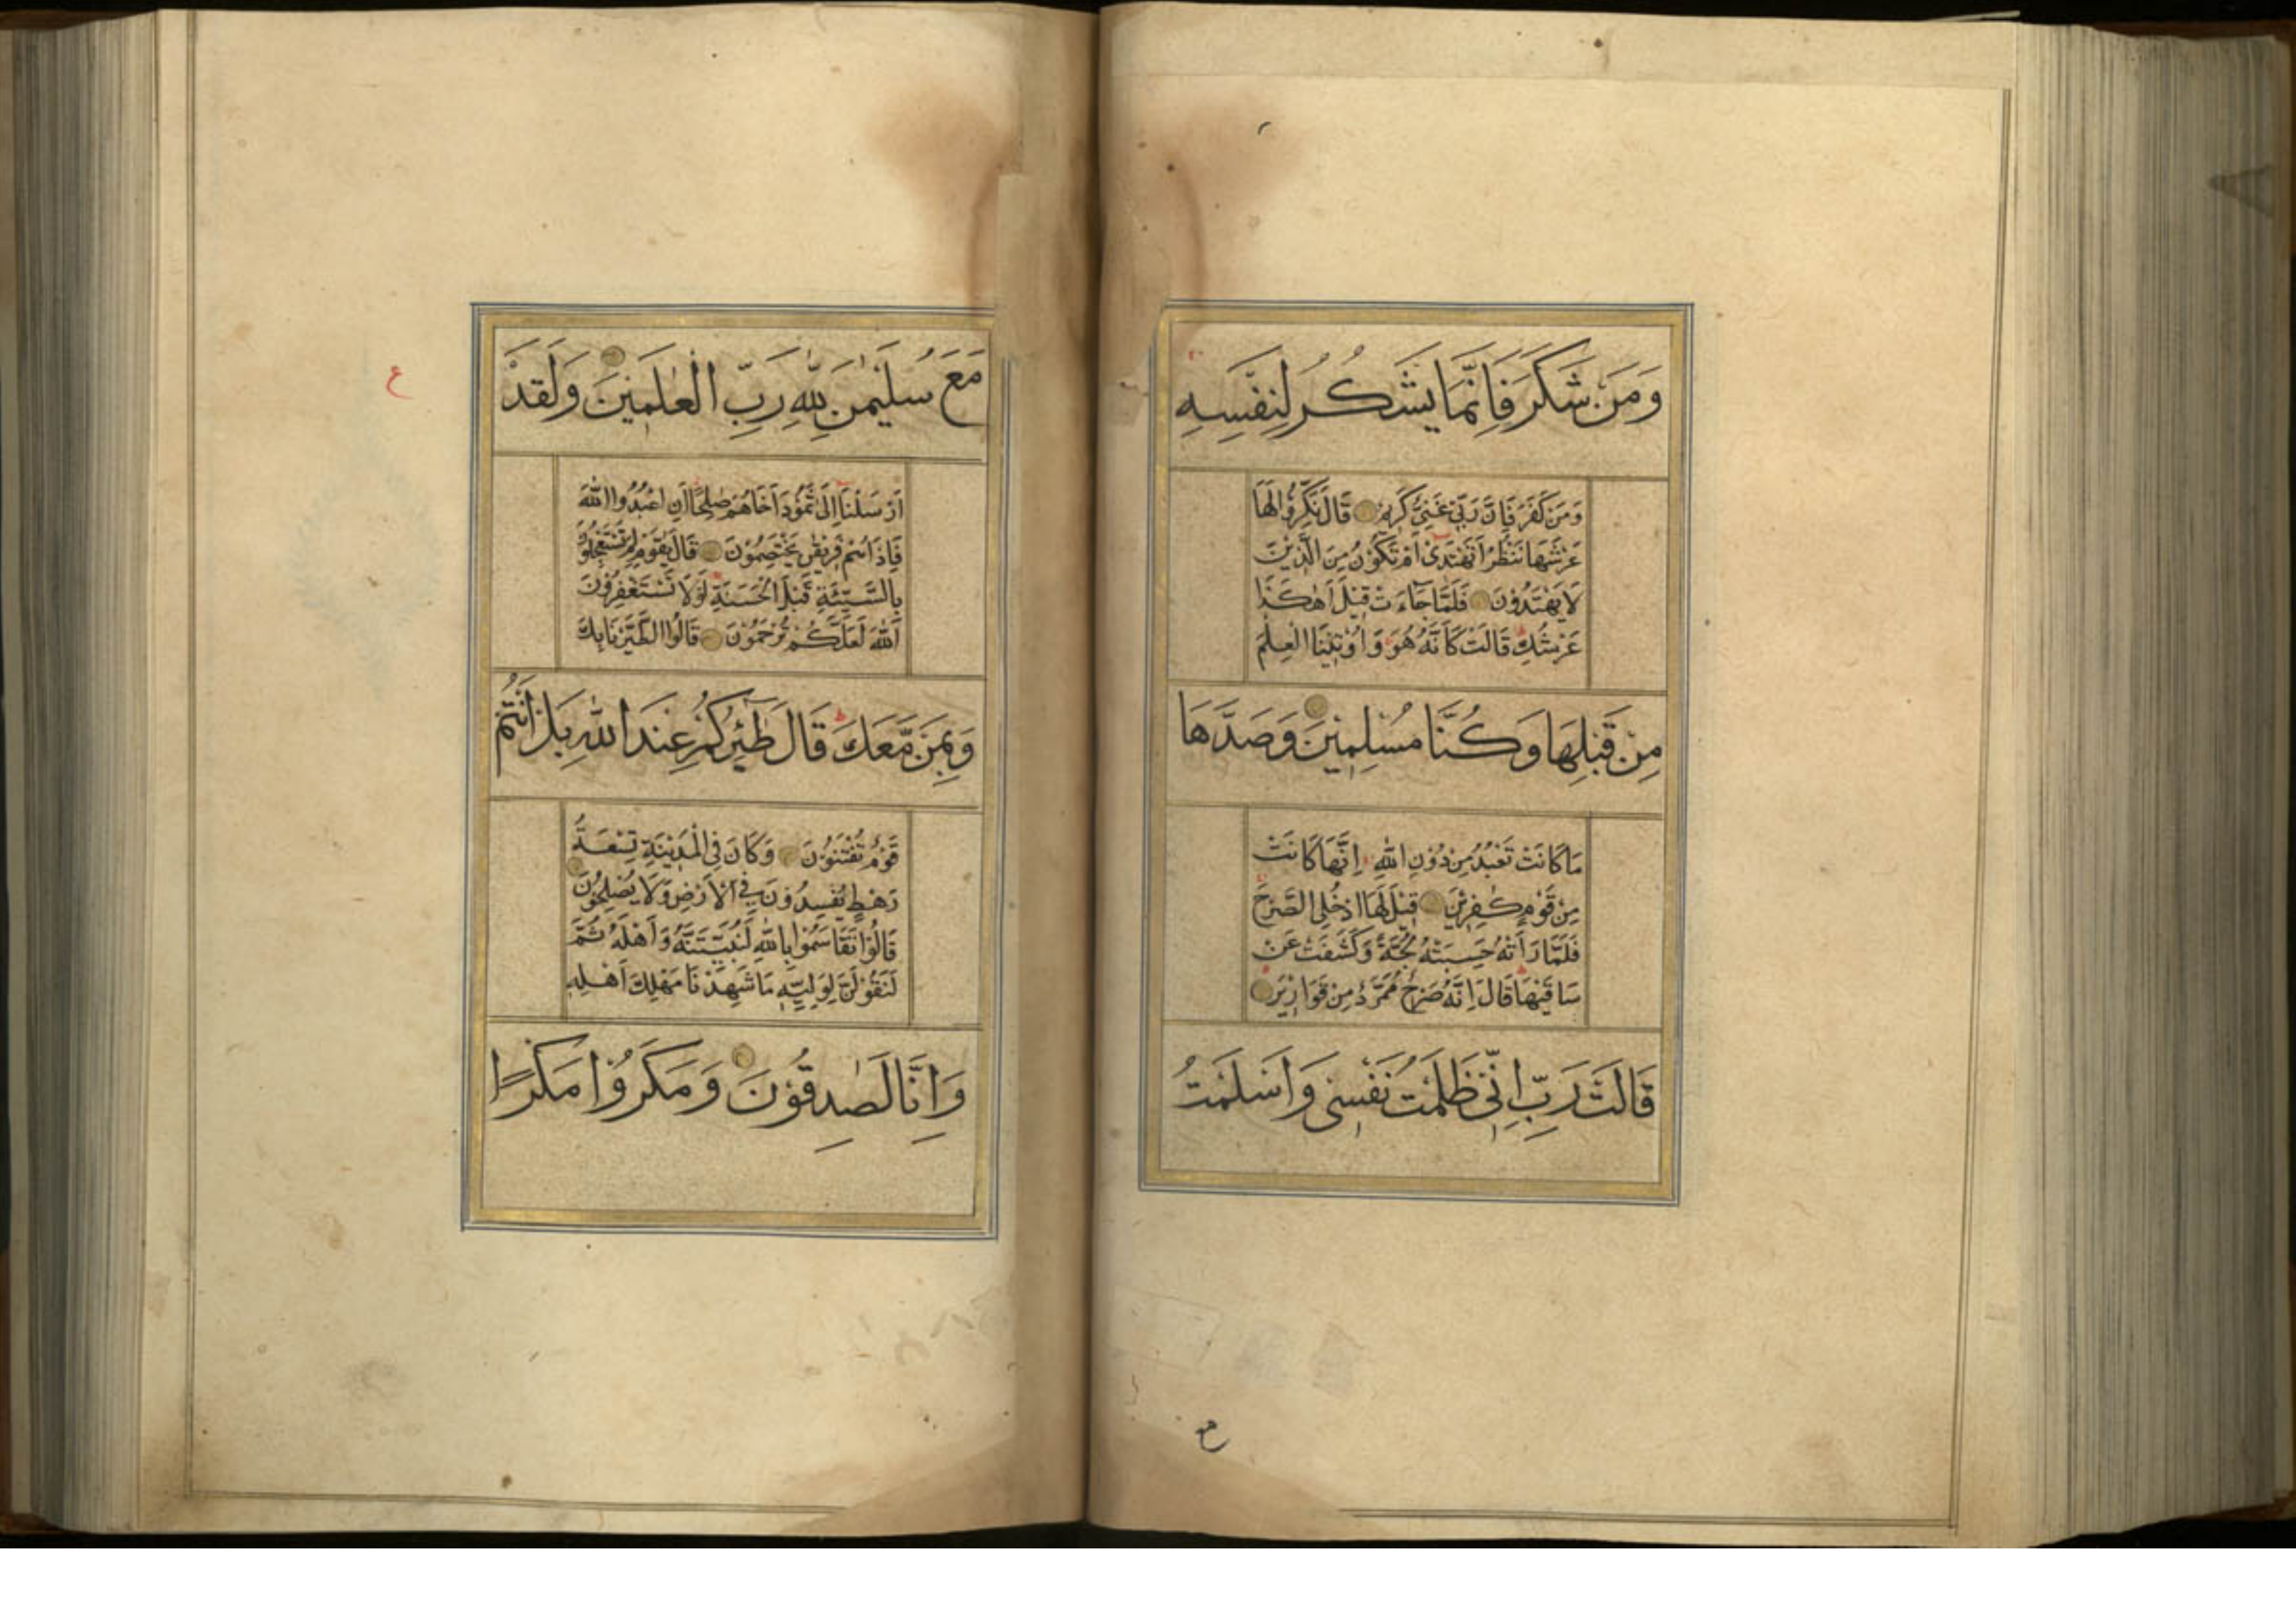 وَمَنْ شَكَرَ فَاِنَّمَا يَشْكُرُ لِنَفْسِهِ
وَمَنْ كَفَرَ فَاِنَّ رَبِّى غَنِىٌّ كَرِيمٌ قَالَ نَكِّرُوا لَهَا
عَرْشَهَا نَنْظُرْ اَتَهْتَدِىْ اَمْ تَكُوْنُ مِنَ الَّذِيْنَ
لَا يَهْتَدُوْنَ فَلَمَّا جَاءَتْ قِيْلَ اَهٰكَذَا
عَرْشُكِ قَالَتْ كَاَنَّهُ هُوَ وَاُوْتِيْنَا الْعِلْمَ
مِنْ قَبْلِهَا وَكُنَّا مُسْلِمِيْنَ وَصَدَّهَا
مَا كَانَتْ تَعْبُدُ مِنْ دُوْنِ اللّٰهِ اِنَّهَا كَانَتْ
مِنْ قَوْمٍ كٰفِرِيْنَ قِيْلَ لَهَا ادْخُلِى الصَّرْحَ
فَلَمَّا رَاَتْهُ حَسِبَتْهُ لُجَّةً وَكَشَفَتْ عَنْ
سَاقَيْهَا قَالَ اِنَّهُ صَرْحٌ مُمَرَّدٌ مِنْ قَوَارِيْرَ
قَالَتْ رَبِّ اِنِّى ظَلَمْتُ نَفْسِى وَاَسْلَمْتُ
ع
مَعَ سُلَيْمٰنَ لِلّٰهِ رَبِّ الْعٰلَمِيْنَ وَلَقَدْ
اَرْسَلْنَا اِلٰى ثَمُوْدَ اَخَاهُمْ صٰلِحًا اَنِ اعْبُدُوا اللّٰهَ
فَاِذَا هُمْ فَرِيْقٰنِ يَخْتَصِمُوْنَ قَالَ يٰقَوْمِ لِمَ تَسْتَعْجِلُوْنَ
بِالسَّيِّئَةِ قَبْلَ الْحَسَنَةِ لَوْلَا تَسْتَغْفِرُوْنَ
اللّٰهَ لَعَلَّكُمْ تُرْحَمُوْنَ قَالُوا اطَّيَّرْنَا بِكَ
وَبِمَنْ مَّعَكَ قَالَ طٰٓئِرُكُمْ عِنْدَ اللّٰهِ بَلْ اَنْتُمْ
قَوْمٌ تُفْتَنُوْنَ وَكَانَ فِى الْمَدِيْنَةِ تِسْعَةُ
رَهْطٍ يُفْسِدُوْنَ فِى الْاَرْضِ وَلَا يُصْلِحُوْنَ
قَالُوْا تَقَاسَمُوْا بِاللّٰهِ لَنُبَيِّتَنَّهُ وَاَهْلَهُ ثُمَّ
لَنَقُوْلَنَّ لِوَلِيِّهٖ مَا شَهِدْنَا مَهْلِكَ اَهْلِهٖ
وَاِنَّا لَصٰدِقُوْنَ وَمَكَرُوْا مَكْرًا